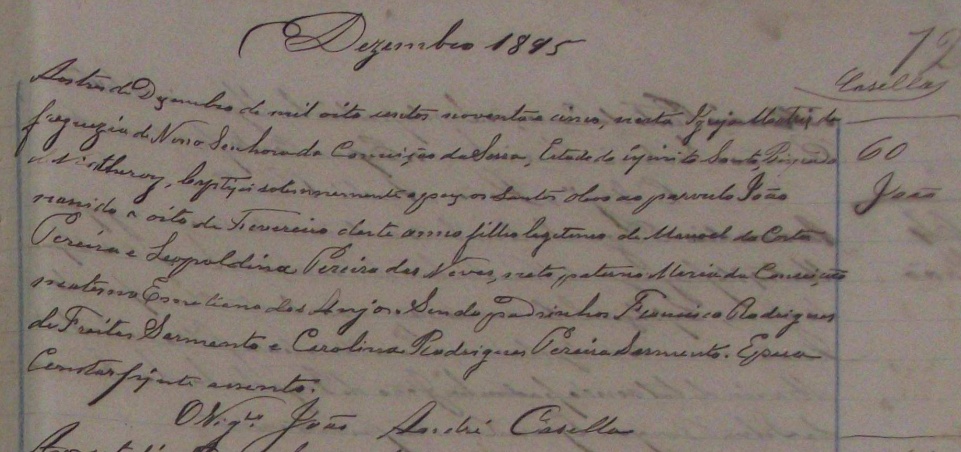 Dezembro 1895
72
Casella
Aos tres de Dezembro de mil oito centos noventa e cinco, nesta Igreja Matriz da
freguezia de Nossa Senhora da Conceição da Serra, Estado do Espirito Santo, Bispado
de Nictheroy, baptizei solennemente e puz os Santos oleos ao parvulo João
60
João
nascido a oito de Fevereiro deste anno filho legitimo de Manoel da Costa
Pereira e Leopoldina Pereira das Neves, neto, paterno Maria da Conceição
materna Emeliana dos Anjos. Sendo padrinhos Francisco Rodrigues
de Freitas Sarmento e Carolina Rodrigues Pereira Sarmento. E para
Constar fiz este assento.
O Vig.º João André Casella